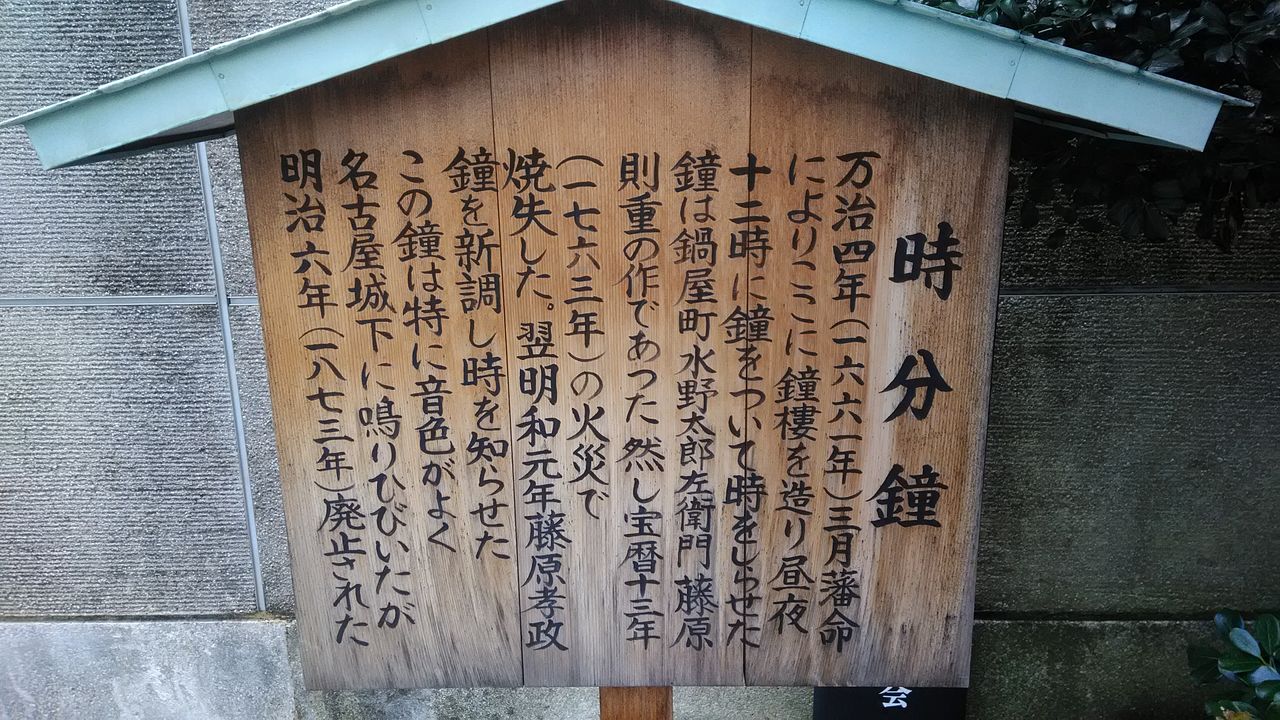 時分鐘
万治四年(一六六一年)三月藩命
によりここに鐘樓を造り昼夜
十二時に鐘をついて時をしらせた
鐘は鍋屋町水野太郎左衛門藤原
則重の作であつた然し宝暦十三年
(一七六三年)の火災で
焼失した。翌明和元年藤原孝政
鐘を新調し時を知らせた
この鐘は特に音色がよく
名古屋城下に鳴りひびいたが
明治六年(一八七三年)廃止された
会